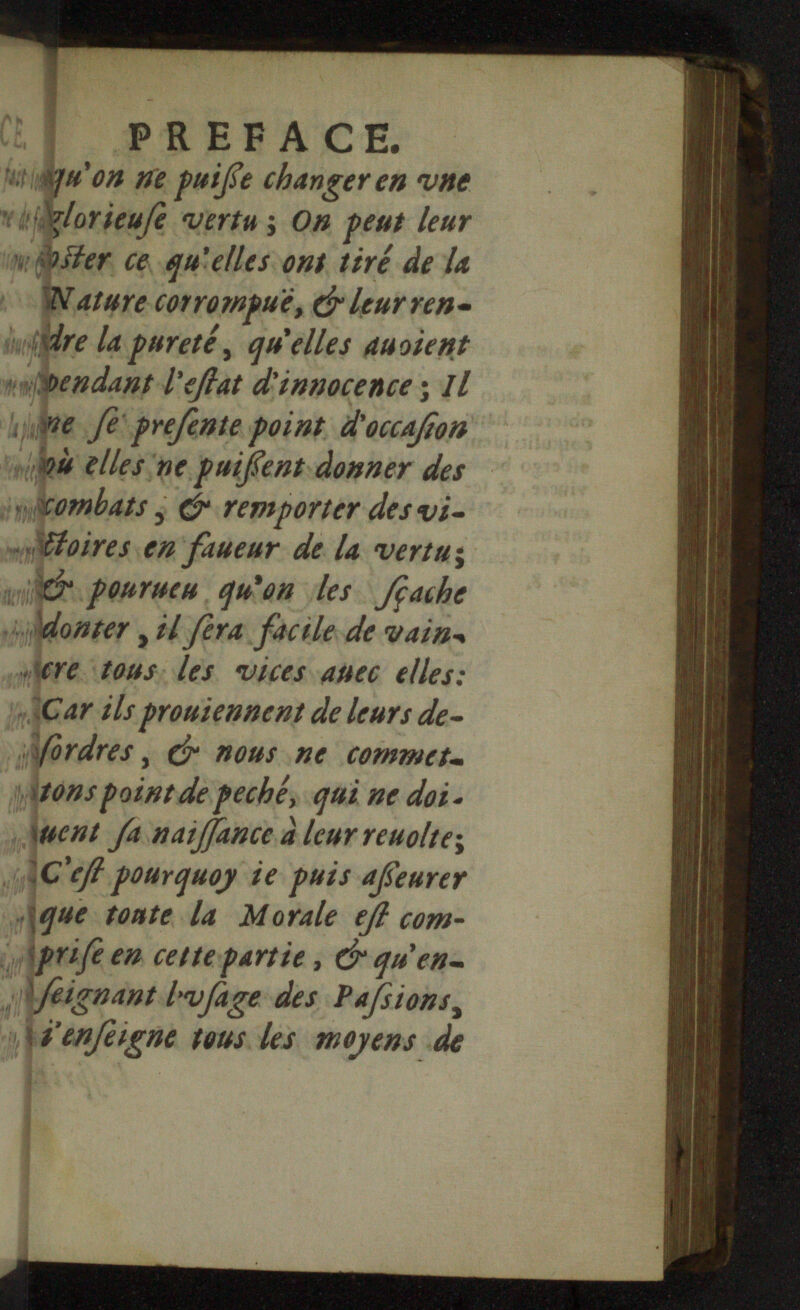 PREFACE.
qu'on ne puiſſe changer en vne
glorieuſe vertu ; On peut leur
oster ce qu'elles ont tiré de la
Nature corrompuë, & leur ren-
dre la pureté, qu'elles auoient
pendant l'eſtat d'innocence ; Il
ne ſe preſente point d'occaſion
où elles ne puiſſent donner des
combats , & remporter des vi-
ctoires en faueur de la vertu;
& pourueu qu'on les ſçache
donter , il ſera facile de vain-
cre tous les vices auec elles:
Car ils prouiennent de leurs de-
ſordres , & nous ne commet-
tons point de peché, qui ne doi-
uent ſa naiſſance à leur reuolte;
C'eſt pourquoy ie puis aſſeurer
que toute la Morale eſt com-
priſe en cette partie , & qu'en-
ſeignant l'vſage des Paſsions,
i'enſeigne tous les moyens de